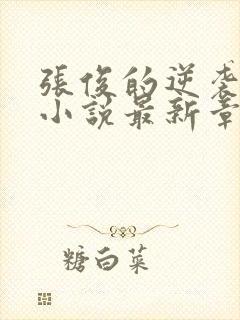 張俊的逆袭
小說最新章
糖白菜